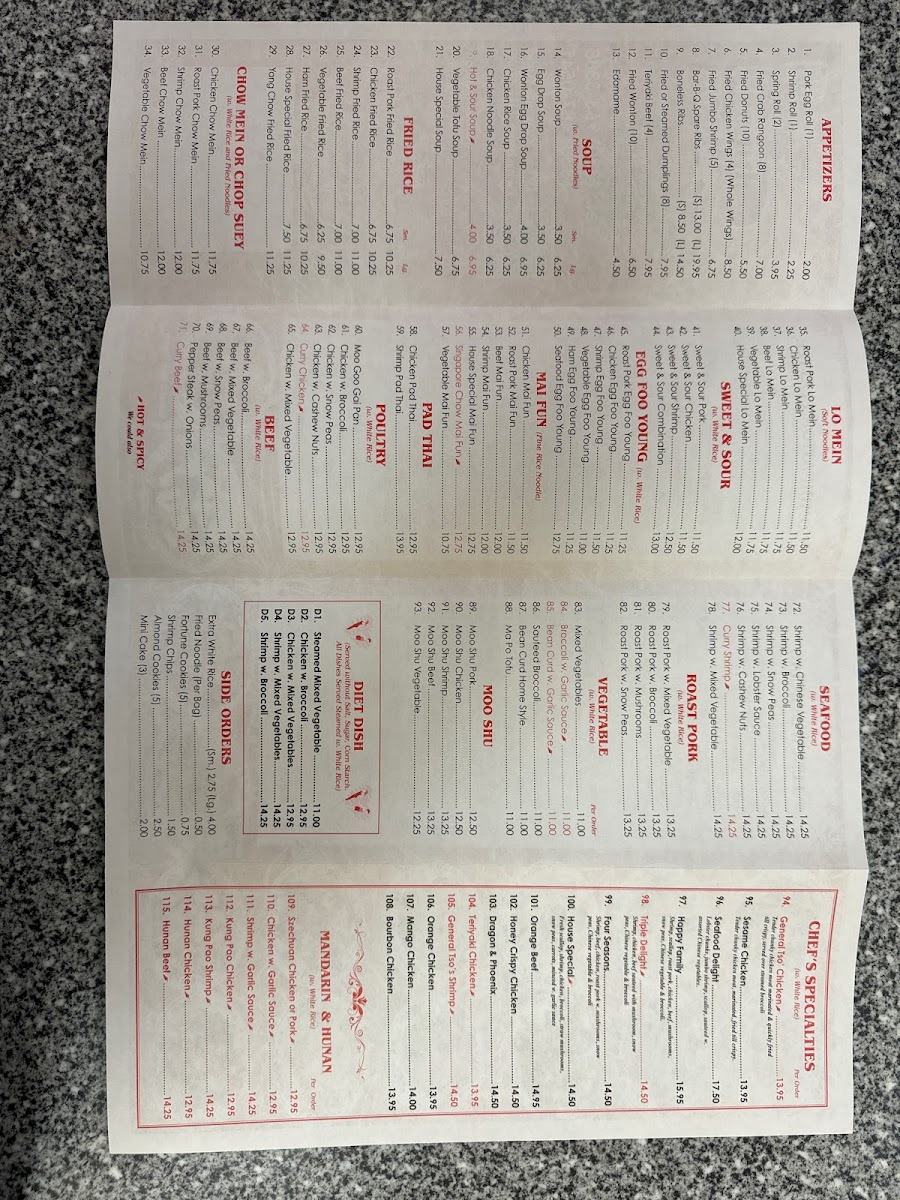 APPETIZERS
1. Pork Egg Roll (1) 2.00
2. Shrimp Roll (1) 2.25
3. Spring Roll (2) 3.95
4. Fried Crab Rangoon (8) 7.00
5. Fried Donuts (10) 5.50
6. Fried Chicken Wings (4) (Whole Wings) 8.50
7. Fried Jumbo Shrimp (5) 6.75
8. Bar-B-Q Spare Ribs (S) 13.00 (L) 19.95
9. Boneless Ribs (S) 8.50 (L) 14.50
10. Fried or Steamed Dumplings (8) 7.95
11. Teriyaki Beef (4) 7.95
12. Fried Wonton (10) 6.50
13. Edamame 4.50
SOUP
(w. Fried Noodles) Sm. Lg.
14. Wonton Soup 3.50 6.25
15. Egg Drop Soup 3.50 6.25
16. Wonton Egg Drop Soup 4.00 6.95
17. Chicken Rice Soup 3.50 6.25
18. Chicken Noodle Soup 3.50 6.25
Hot & Sour Soup 4.00 6.95
20. Vegetable Tofu Soup 6.75
21. House Special Soup 7.50
FRIED RICE
Sm. Lg.
22. Roast Pork Fried Rice 6.75 10.25
23. Chicken Fried Rice 6.75 10.25
24. Shrimp Fried Rice 7.00 11.00
25. Beef Fried Rice 7.00 11.00
26. Vegetable Fried Rice 6.25 9.50
27. Ham Fried Rice 6.75 10.25
28. House Special Fried Rice 7.50 11.25
29. Yang Chow Fried Rice 11.25
CHOW MEIN OR CHOP SUEY
(w. White Rice and Fried Noodles)
30. Chicken Chow Mein 11.75
31. Roast Pork Chow Mein 11.75
32. Shrimp Chow Mein 12.00
33. Beef Chow Mein 12.00
34. Vegetable Chow Mein 10.75
LO MEIN
(Soft Noodles)
35. Roast Pork Lo Mein 11.50
36. Chicken Lo Mein 11.50
37. Shrimp Lo Mein 11.75
38. Beef Lo Mein 11.75
39. Vegetable Lo Mein 11.75
40. House Special Lo Mein 12.00
SWEET & SOUR
(w. White Rice)
41. Sweet & Sour Pork 11.50
42. Sweet & Sour Chicken 11.50
43. Sweet & Sour Shrimp 12.50
44. Sweet & Sour Combination 13.00
EGG FOO YOUNG (w. White Rice)
45. Roast Pork Egg Foo Young 11.25
46. Chicken Egg Foo Young 11.25
47. Shrimp Egg Foo Young 11.50
48. Vegetable Egg Foo Young 11.00
49. Ham Egg Foo Young 11.25
50. Seafood Egg Foo Young 12.75
MAI FUN (Fine Rice Noodle)
51. Chicken Mai Fun 11.50
52. Roast Pork Mai Fun 11.50
53. Beef Mai Fun 12.00
54. Shrimp Mai Fun 12.00
55. House Special Mai Fun 12.75
56. Singapore Chow Mai Fun 12.75
57. Vegetable Mai Fun 10.75
PAD THAI
58. Chicken Pad Thai 12.95
59. Shrimp Pad Thai 13.95
POULTRY
(w. White Rice)
60. Moo Goo Gai Pan 12.95
61. Chicken w. Broccoli 12.95
62. Chicken w. Snow Peas 12.95
63. Chicken w. Cashew Nuts 12.95
64. Curry Chicken 12.95
65. Chicken w. Mixed Vegetable 12.95
BEEF
(w. White Rice)
66. Beef w. Broccoli 14.25
67. Beef w. Mixed Vegetable 14.25
68. Beef w. Snow Peas 14.25
69. Beef w. Mushrooms 14.25
70. Pepper Steak w. Onions 14.25
71. Curry Beef 14.25
HOT & SPICY
We could also
SEAFOOD
(w. White Rice)
72. Shrimp w. Chinese Vegetable 14.25
73. Shrimp w. Broccoli 14.25
74. Shrimp w. Snow Peas 14.25
75. Shrimp w. Lobster Sauce 14.25
76. Shrimp w. Cashew Nuts 14.25
77. Curry Shrimp 14.25
78. Shrimp w. Mixed Vegetable 14.25
ROAST PORK
(w. White Rice)
79. Roast Pork w. Mixed Vegetable 13.25
80. Roast Pork w. Broccoli 13.25
81. Roast Pork w. Mushrooms 13.25
82. Roast Pork w. Snow Peas 13.25
VEGETABLE
(w. White Rice) Per Order
83. Mixed Vegetables 11.00
84. Broccoli w. Garlic Sauce 11.00
85. Bean Curd w. Garlic Sauce 11.00
86. Sauteed Broccoli 11.00
87. Bean Curd Home Style 11.00
88. Ma Po Tofu 11.00
MOO SHU
89. Moo Shu Pork 12.50
90. Moo Shu Chicken 12.50
91. Moo Shu Shrimp 13.25
92. Moo Shu Beef 13.25
93. Moo Shu Vegetable 12.25
DIET DISH
(Served without Salt, Sugar, Corn Starch.
All Dishes Served Steamed w. White Rice)
D1. Steamed Mixed Vegetable 11.00
D2. Chicken w. Broccoli 12.95
D3. Chicken w. Mixed Vegetables 12.95
D4. Shrimp w. Mixed Vegetables 14.25
D5. Shrimp w. Broccoli 14.25
SIDE ORDERS
Extra White Rice (Sm.) 2.75 (Lg.) 4.00
Fried Noodle (Per Bag) 0.50
Fortune Cookies (5) 0.75
Shrimp Chips 1.50
Almond Cookies (5) 2.50
Mini Cake (3) 2.00
CHEF'S SPECIALTIES
(w. White Rice) Per Order
94. General Tso' Chicken 13.95
Tender chunky chicken meat marinated & quickly fried
till crispy, served over steamed broccoli
95. Sesame Chicken 13.95
Tender chunky chicken meat, marinated, fried till crispy.
96. Seafood Delight 17.50
Lobster chunks, jumbo shrimp, scallop, sauteed w.
assorted Chinese vegetables.
97. Happy Family 15.95
Shrimp, scallop, roast pork, chicken, beef, mushrooms,
snow peas, Chinese vegetable & broccoli.
98. Triple Delight 14.50
Shrimp, chicken, beef sauteed with mushroom, snow
peas, Chinese vegetable & broccoli
99. Four Seasons 14.50
Shrimp, beef, chicken, roast pork w. mushrooms, snow
peas, Chinese vegetable & broccoli
100. House Special 14.50
Fresh scallop, shrimp, chicken, broccoli, straw mushrooms,
snow peas, carrots, mixed w. garlic sauce
101. Orange Beef 14.95
102. Honey Crispy Chicken 14.50
103. Dragon & Phoenix 14.50
104. Teriyaki Chicken 13.95
105. General Tso's Shrimp 14.50
106. Orange Chicken 13.95
107. Mango Chicken 14.00
108. Bourbon Chicken 13.95
MANDARIN & HUNAN
(w. White Rice) Per Order
109. Szechuan Chicken or Pork 12.95
110. Chicken w. Garlic Sauce 12.95
111. Shrimp w. Garlic Sauce 14.25
112. Kung Pao Chicken 12.95
113. Kung Pao Shrimp 14.25
114. Hunan Chicken 12.95
115. Hunan Beef 14.25